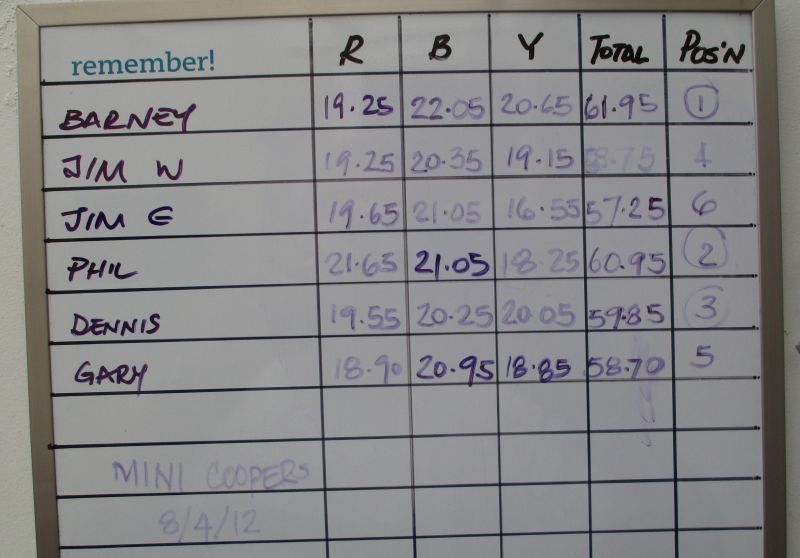 remember! R B Y TOTAL POS'N
BARNEY 19.25 22.05 20.65 61.95 1
JIM W 19.25 20.35 19.15 58.75 4
JIM E 19.65 21.05 16.55 57.25 6
PHIL 21.65 21.05 18.25 60.95 2
DENNIS 19.55 20.25 20.05 59.85 3
GARY 18.90 20.95 18.85 58.70 5
MINI COOPERS
8/4/12